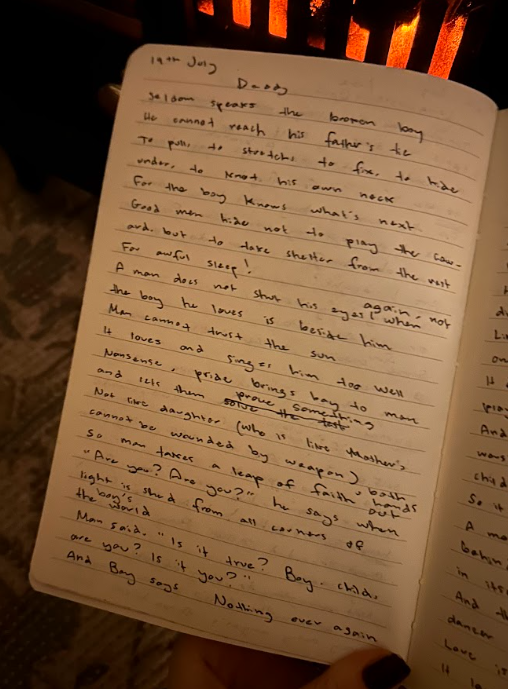 19th July
Daddy
Seldom speaks the broken boy
He cannot reach his father's tie
To pull, to stretch, to fix, to hide
under, to knot his own neck
For the boy knows what's next
Good men hide not to play the cow-
ard, but to take shelter from the rest
For awful sleep!
A man does not shut his eyes again, not when
the boy he loves is beside him
Man cannot trust the sun
It loves and singes him too well
Nonsense, pride brings boy to man
and lets them prove something
Not like daughter (who is like Mother's,
cannot be wounded by weapon)
So man takes a leap of faith, both hands out
"Are you? Are you?" he says when
light is shed from all corners of
the boy's world
Man said. "Is it true? Boy. child.
are you? Is it you?"
And Boy says Nothing ever again